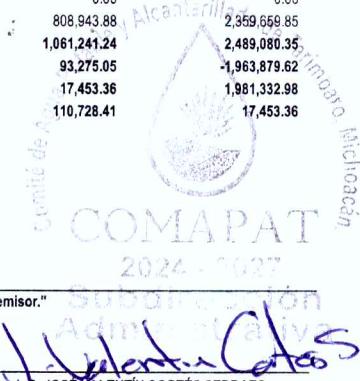 0.00 0.00
808,943.88 2,359,659.85
1,061,241.24 2,489,080.35
93,275.05 -1,963,879.62
17,453.36 1,981,332.98
110,728.41 17,453.36
Comité de Agua Potable y Alcantarillado de Tarímbaro, Michoacán
COMAPAT
2024 - 2027
emisor."
Subdirección
Administrativa
J. Valentín Cortés